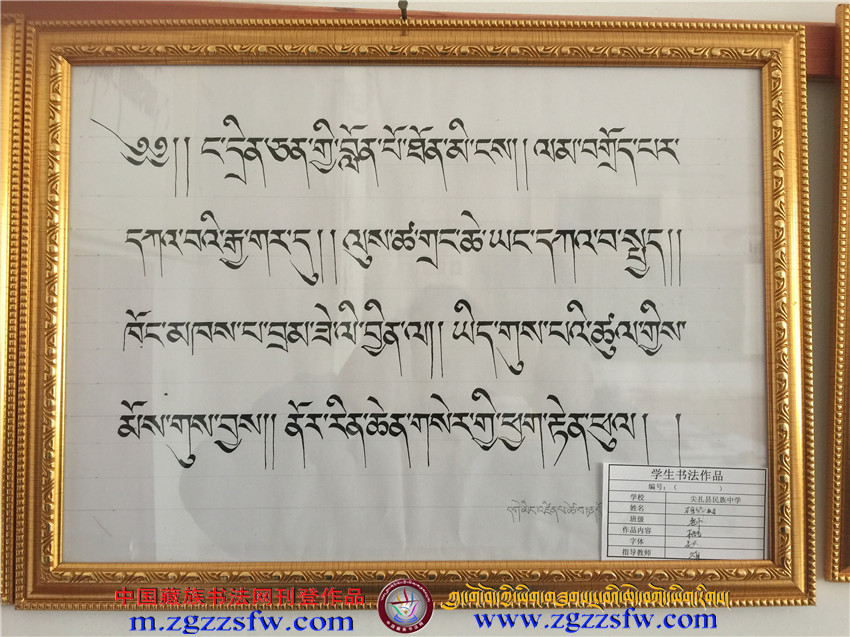 ༄༅།། ང་དྲིན་ཅན་གྱི་བློན་པོ་ཐོན་མི་ངས།། ལམ་བགྲོད་པར་
དཀའ་བའི་རྒྱ་གར་དུ།། ལུས་ཚ་གྲང་ཆེ་ཡང་དཀའ་བ་སྤྱད།།
ཁོང་མཁས་པ་བྲམ་ཟེ་ལི་བྱིན་ལ།། ཡིད་གུས་པའི་ཚུལ་གྱིས་
མོས་གུས་བྱས།། ནོར་རིན་ཆེན་གསེར་གྱི་ཕྱག་རྟེན་ཕུལ། །
学生书法作品
编号：（ ）
学校 尖扎县民族中学
姓名
班级
作品内容
字体
指导教师
中国藏族书法网刊登作品
m.zgzzsfw.com
www.zgzzsfw.com